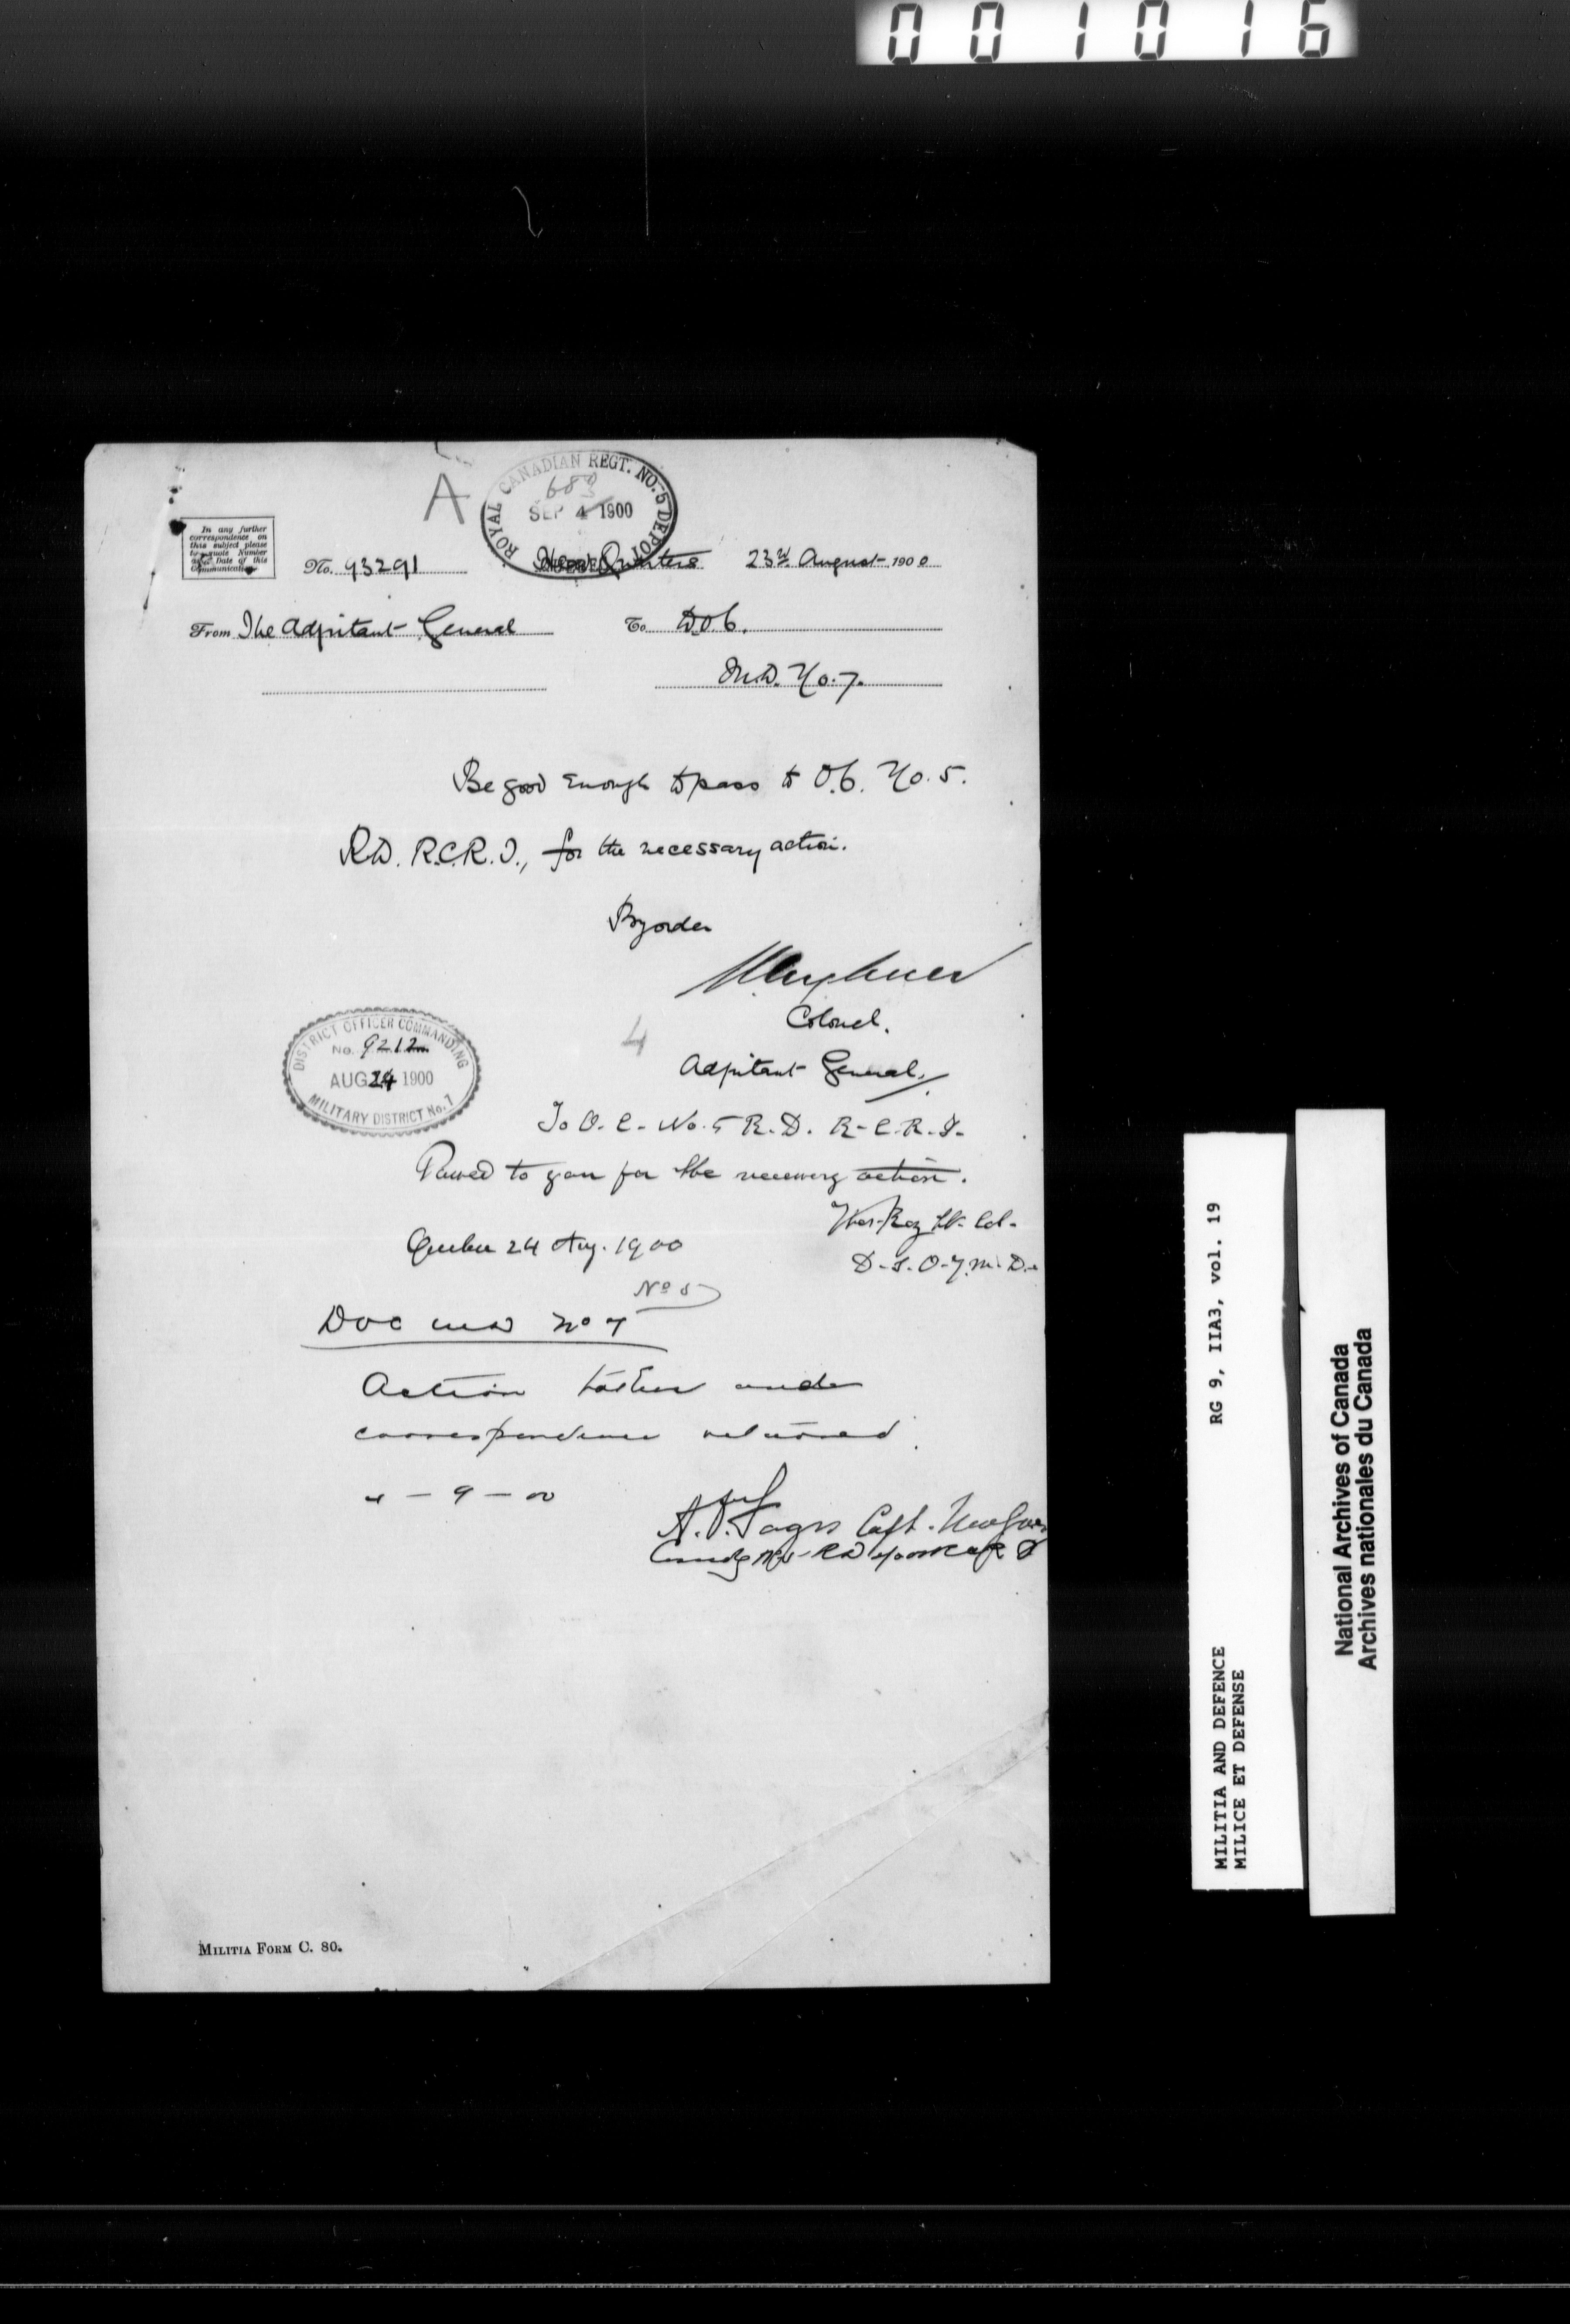 001016
A
ROYAL CANADIAN REGT. NO. 5 DEPOT
683
SEP 4 1900
QUEBEC
In any further
correspondence on
this subject please
to quote Number
and Date of this
Communication.
No. 93291
Head Quarters 23rd August 1900
From The Adjutant General
To D.O.C.
M.D. No. 7.
Be good enough to pass to O.C. No. 5.
R.D. R.C.R.I., for the necessary action.
By order
Colonel.
Adjutant General.
DISTRICT OFFICER COMMANDING
No. 9212
AUG 24 1900
MILITARY DISTRICT No. 7
4
To O.C. No. 5 R.D. R.C.R.I.
Passed to you for the necessary action.
Lt. Col.
Quebec 24 Aug. 1900
D.O.C. 7 M.D.
No 5
DOC MD No 7
Action taken and
correspondence returned.
4-9-00
Capt.
MILITIA FORM C. 80.
MILITIA AND DEFENCE RG 9, IIA3, vol. 19
MILICE ET DEFENSE
National Archives of Canada
Archives nationales du Canada